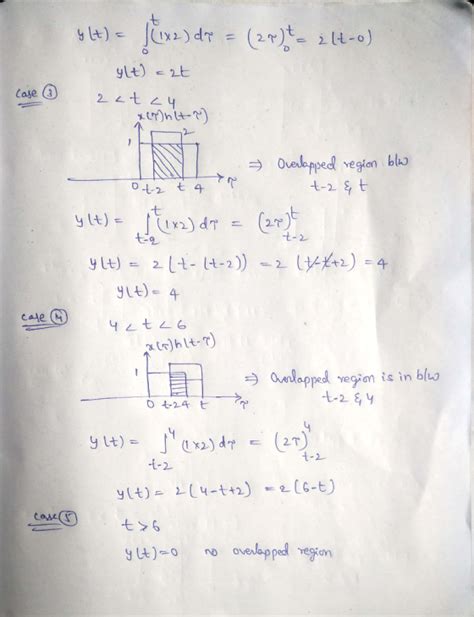 y(t) = ∫₀ᵗ (1×2) dτ = (2τ)₀ᵗ = 2(t-0)
y(t) = 2t
Case ③
2 < t < 4
x(τ)h(t-τ)
2
1
⇒ Overlapped region b/w
t-2 & t
0 t-2 t 4 τ
y(t) = ∫ₜ₋₂ᵗ (1×2) dτ = (2τ)ₜ₋₂ᵗ
y(t) = 2(t-(t-2)) = 2(t-t+2) = 4
y(t) = 4
Case ④
4 < t < 6
x(τ)h(t-τ)
1
⇒ Overlapped region is in b/w
t-2 & 4
0 t-2 4 t τ
y(t) = ∫ₜ₋₂⁴ (1×2) dτ = (2τ)ₜ₋₂⁴
y(t) = 2(4-t+2) = 2(6-t)
Case ⑤
t > 6
y(t) = 0 no overlapped region